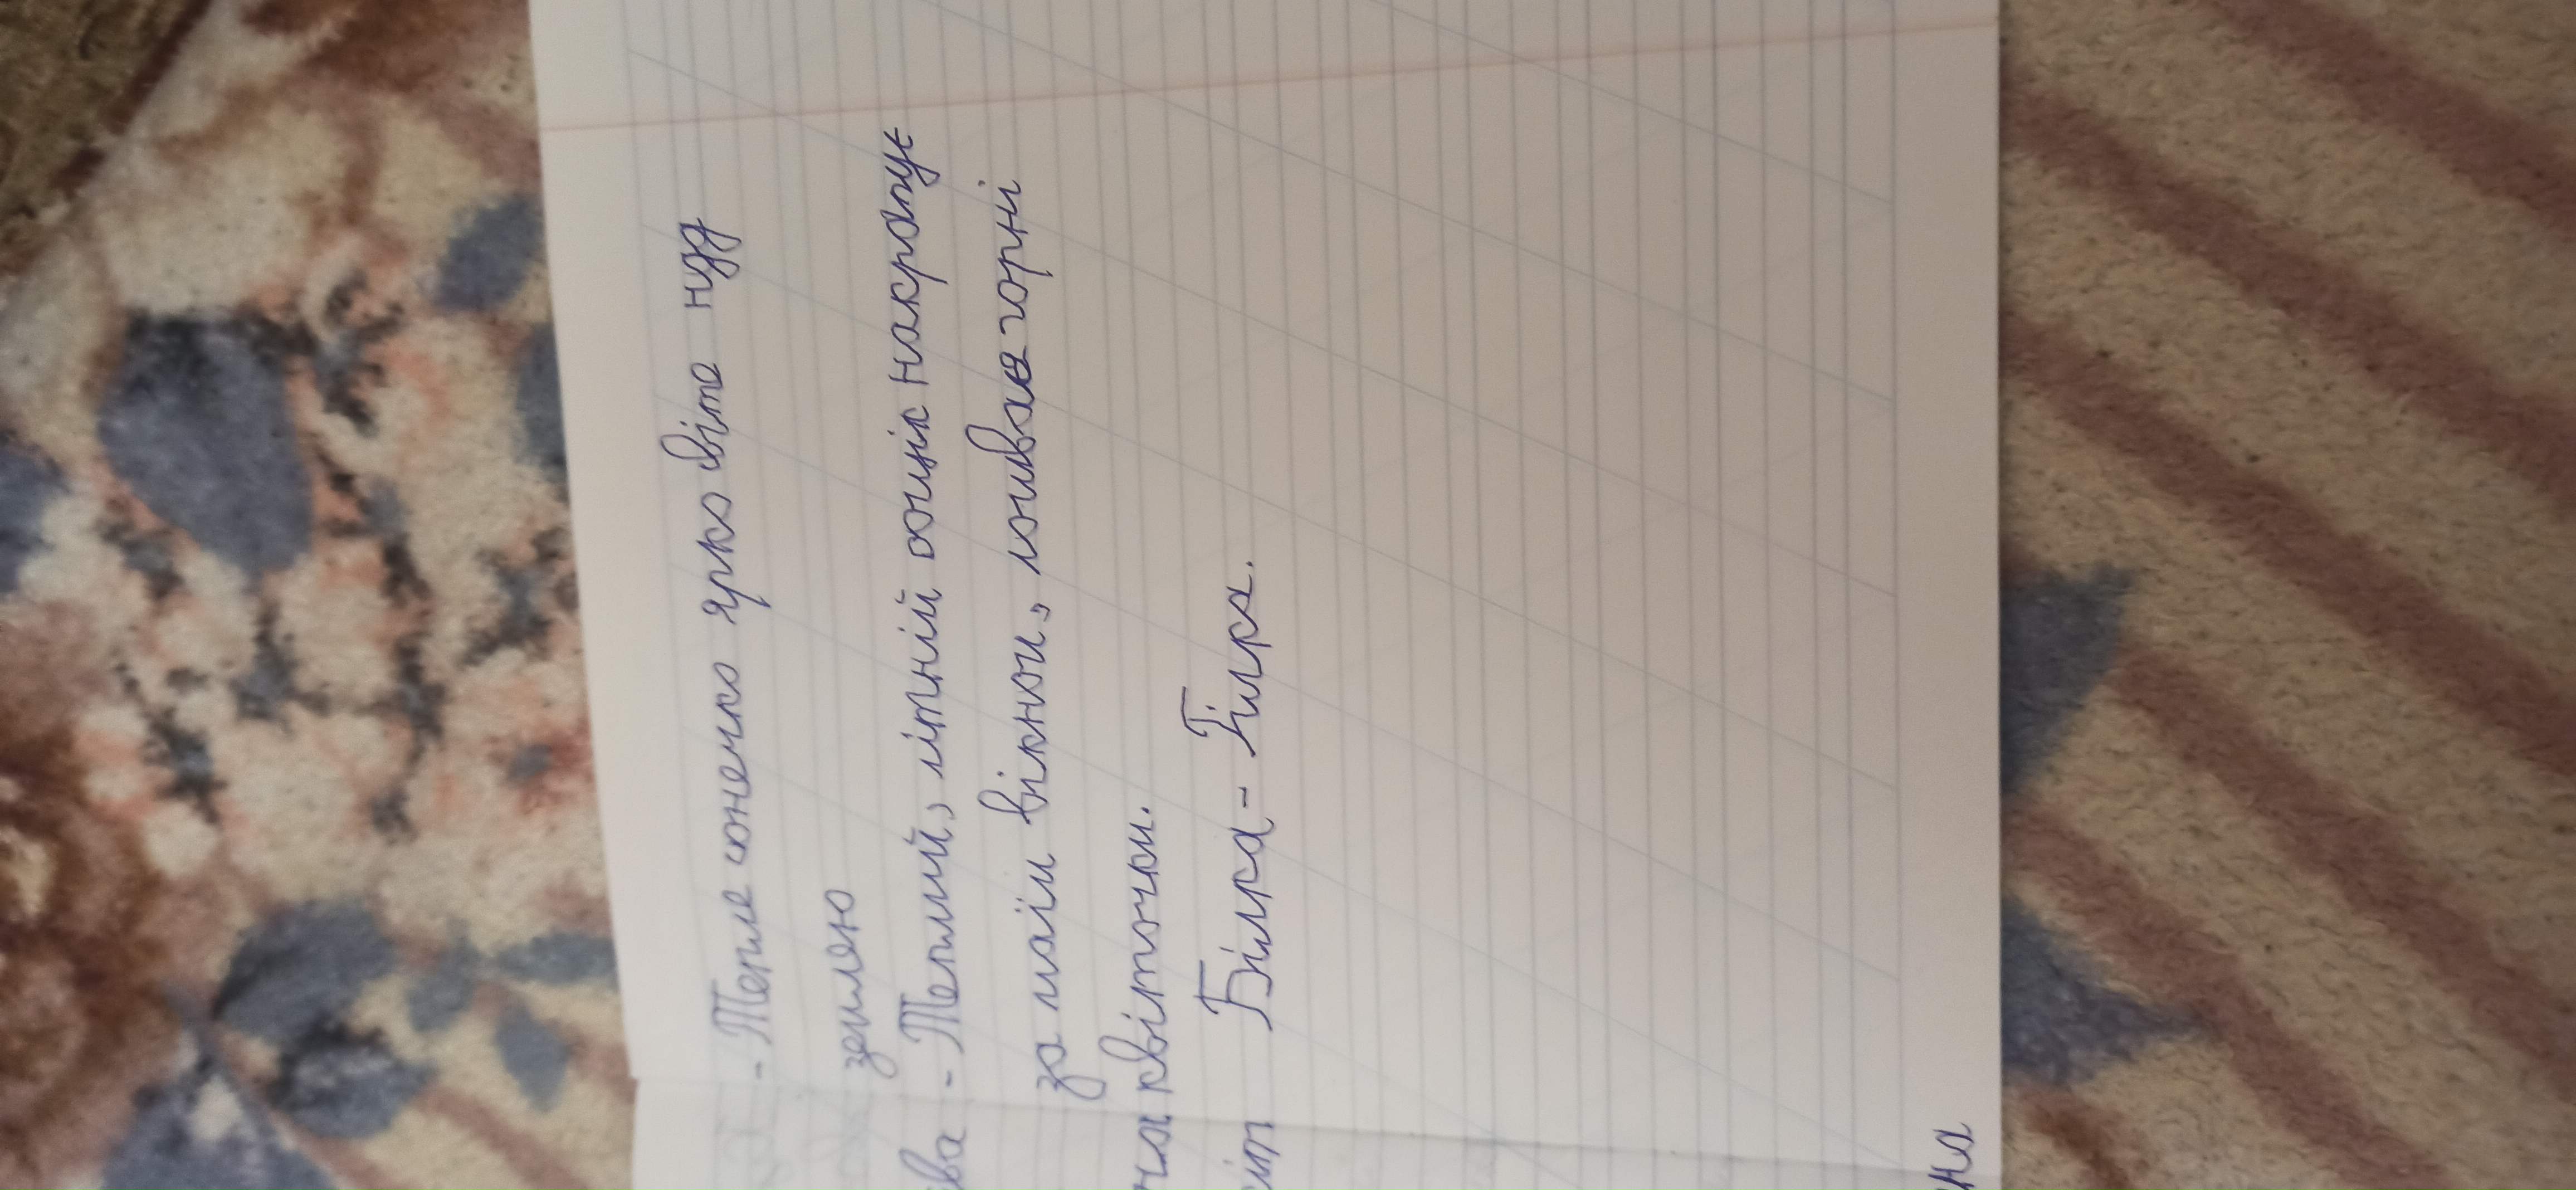 - Тепле сонечко ярко світе над
землю
- Теплий, літній дощік накрапує
за моїм вікном, поливає горні
квіточки.
Білка - Гілка.